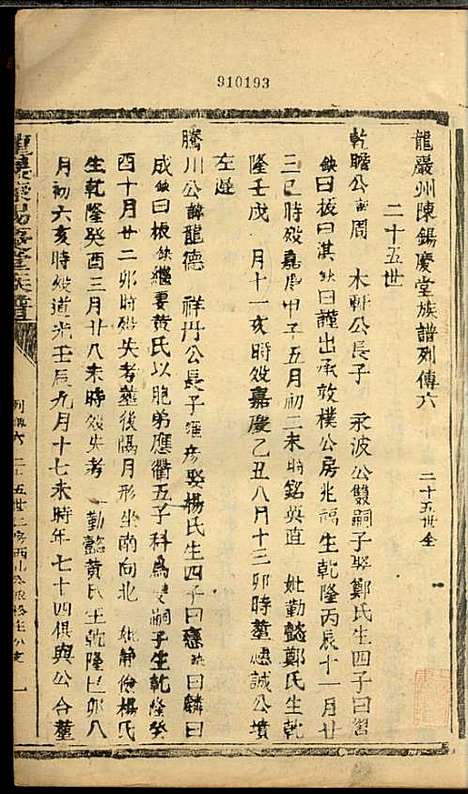 910193
龍巖州陳錫慶堂族譜列傳六 二十五世全
二十五世
乾瞻公 周 木軒公長子 永波公雙嗣子娶鄭氏生四子曰習
缺曰振曰淇缺曰謹出承敦樸公房兆福生乾隆丙辰十一月廿
三巳時歿嘉慶甲子五月初二未時銘英直 妣勤懿鄭氏生乾
隆壬戌 月十一亥時歿嘉慶乙丑八月十三卯時葬 誠公墳
左邊
騰川公諱龍德 祥丹公長子 娶楊氏生四子曰 缺曰麟曰
成缺曰根缺繼妻黃氏以胞弟應衢五子科為 嗣子生乾隆癸
酉十月廿二卯時歿失考葬後隔月形坐南向北 妣靜儉楊氏
生乾隆癸酉三月廿八未時歿失考 勤懿黃氏生乾隆己卯八
月初六亥時歿道光壬辰九月十七未時年七十四俱與公合葬
列傳六 二十五世